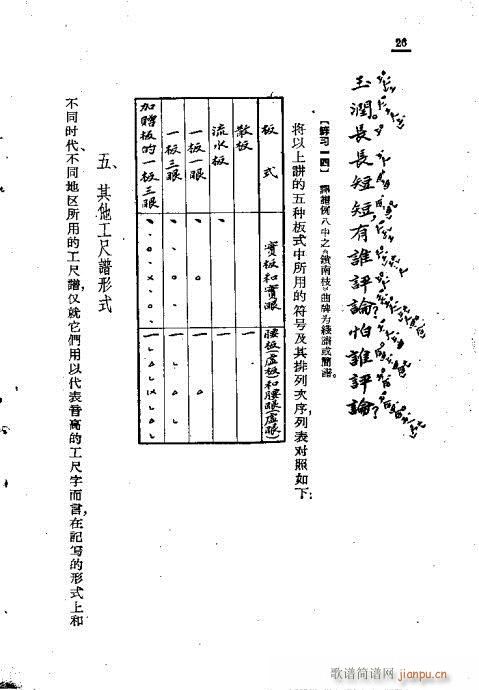 26
玉潤。長長短短,有誰評論?怕誰評論?
【練习一四】 譯譜例八中之“鎖南枝”曲牌为綫譜或簡譜。
将以上講的五种板式中所用的符号及其排列次序,列表对照如下:
板式
實板和實眼
腰板(虛板)和腰眼(虛眼)
散板
流水板
一板一眼
一板三眼
加贈板的一板三眼
五、其他工尺譜形式
不同时代、不同地区所用的工尺譜,仅就它們用以代表音高的工尺字而言,在記写的形式上和
歌谱简谱网
jianpu.cn